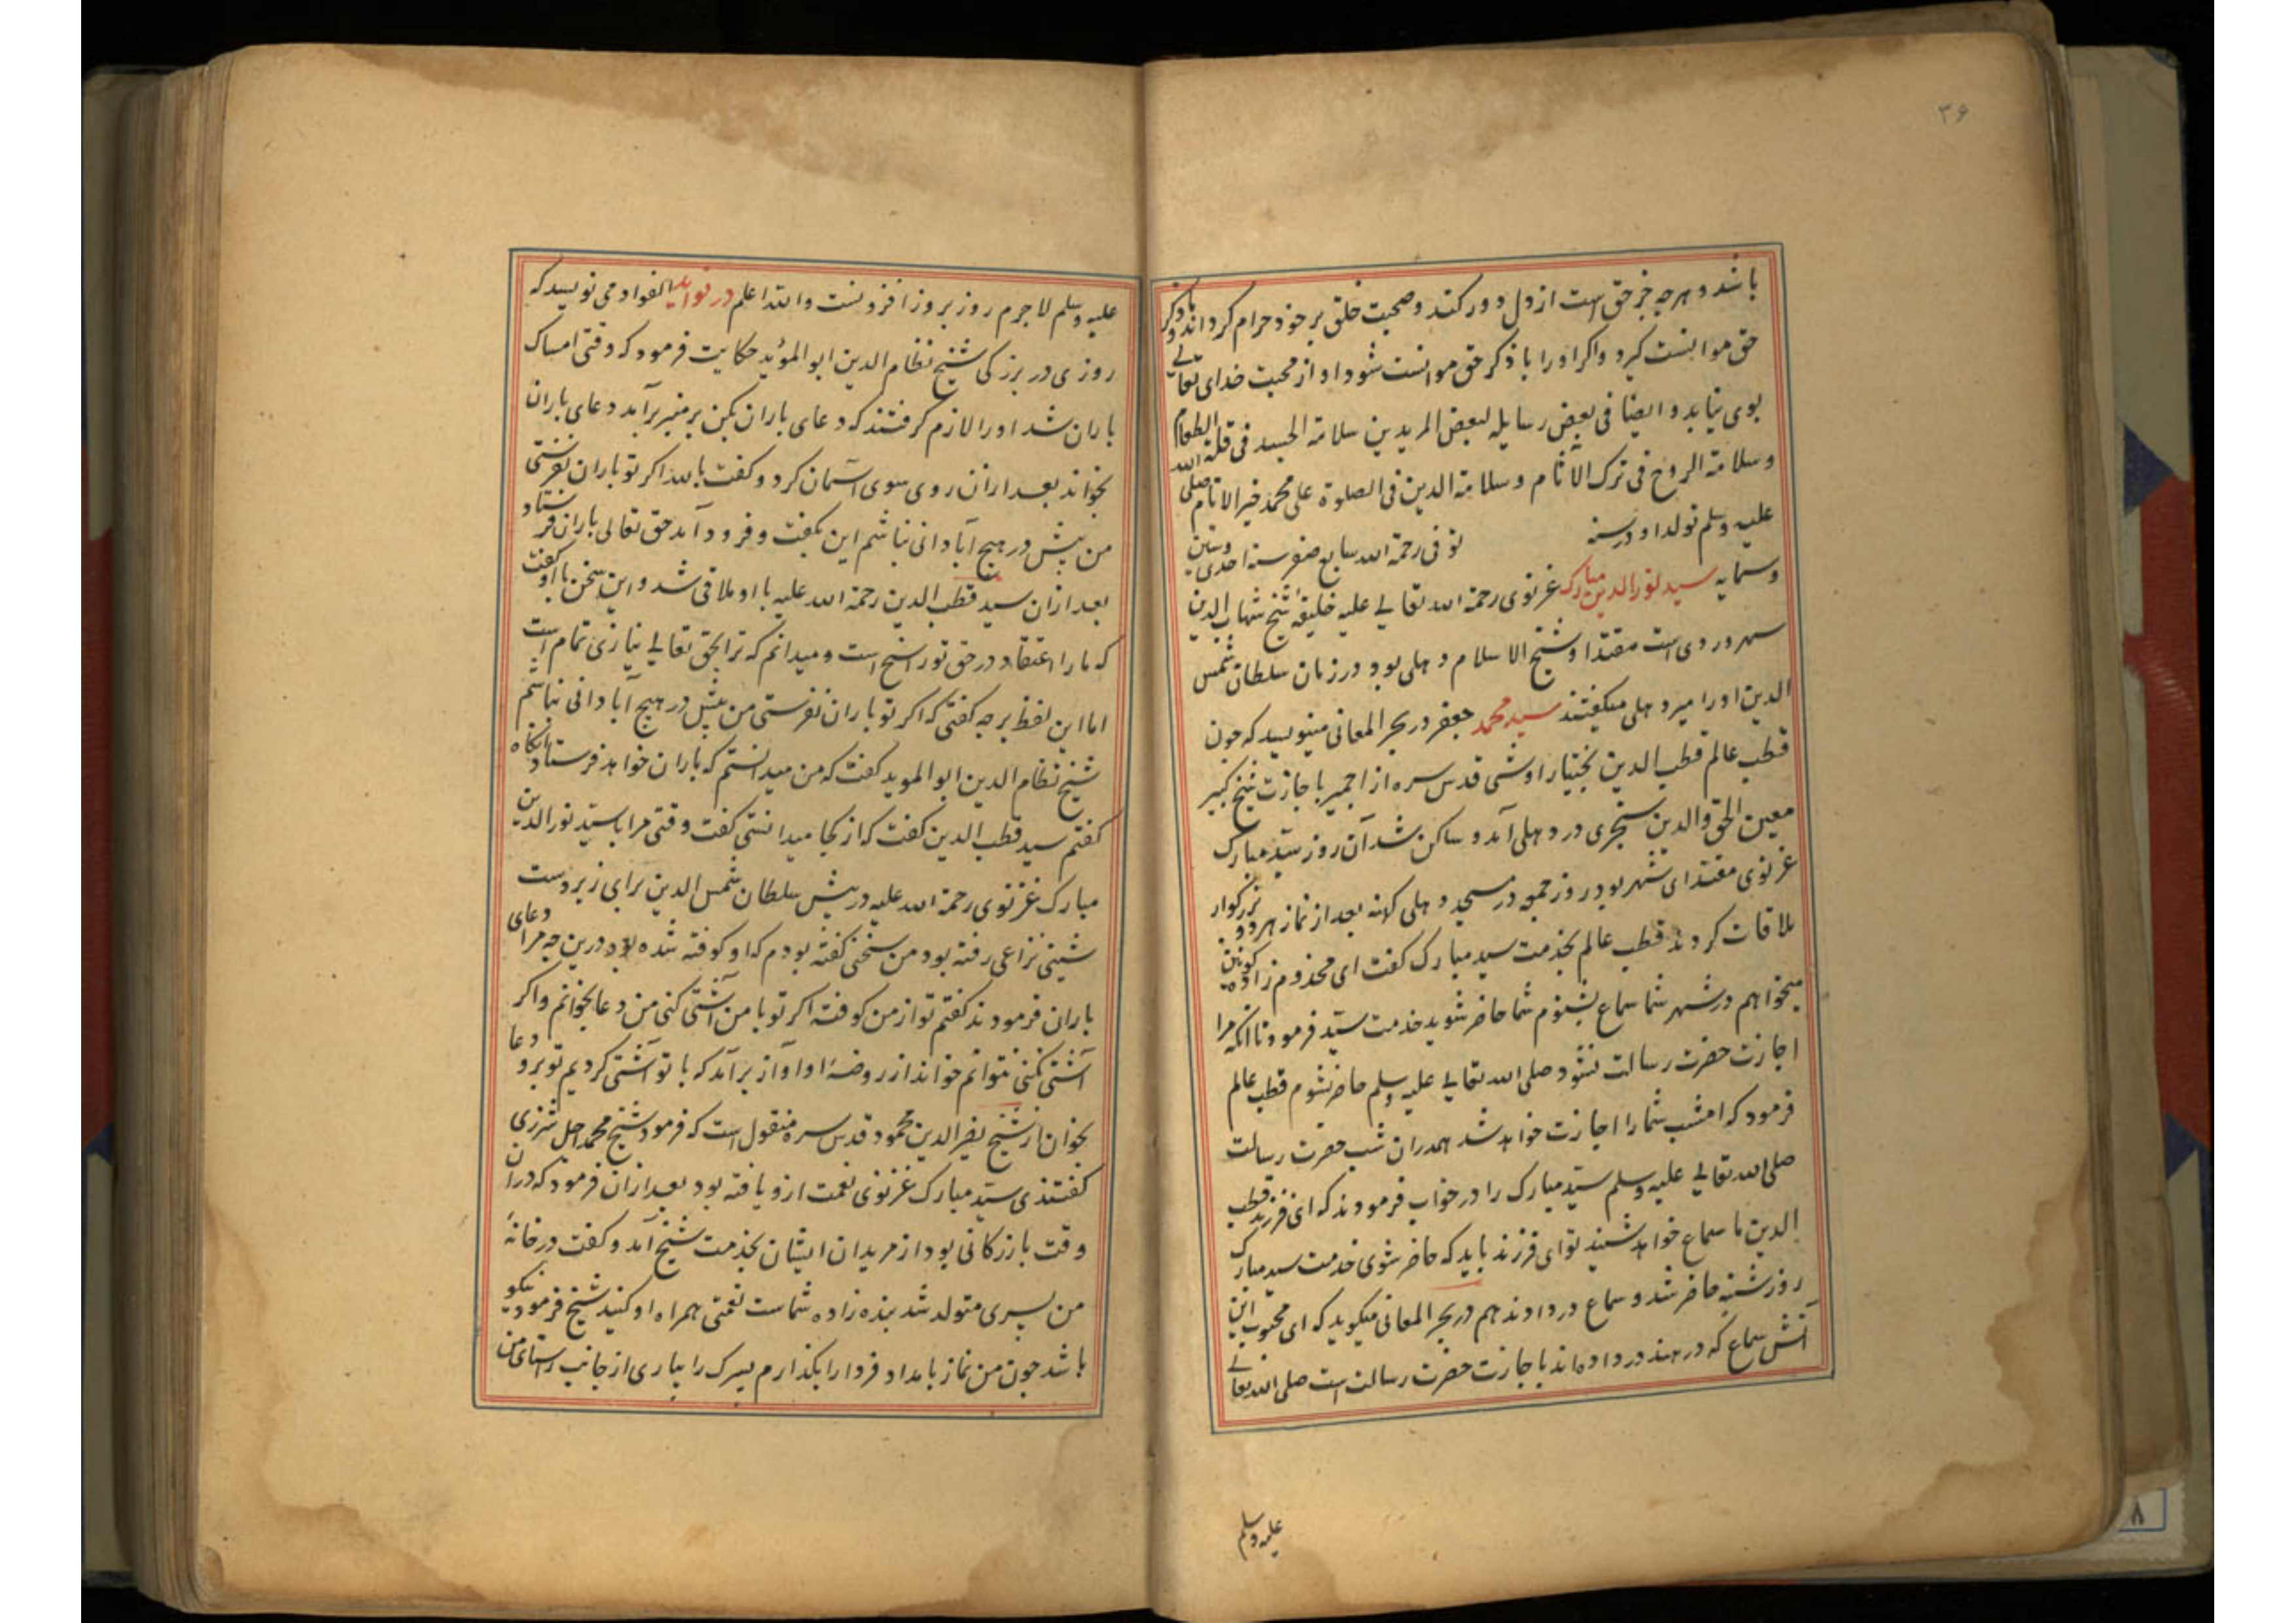 ۳۶
باشد و هرچه جز حق است از دل دور کند و صحبت خلق بر خود حرام کرداند و با ذکر
حق موانست کیرد و اکر او را با ذکر حق موانست نشود او از محبت خدای تعالے
بوی نیابد و ایضا فی بعض رسایله لبعض المریدین سلامة الجسد فی قلة الطعام
و سلامة الروح فی ترک الآثام و سلامة الدین فی الصلوة علی محمد خیر الانام صلی الله
علیه وسلم تولد او در سنه توفی رحمة الله سابع صفر سنه احدی وستین
وستمایه سید نور الدین مبارک غزنوی رحمة الله تعالے علیه خلیفه شیخ شهاب الدین
سهروردی است مقتدا و شیخ الاسلام دهلی بود در زمان سلطان شمس
الدین او را میر دهلی میکفتند سید محمد جعفر در بحر المعانی مینویسد که چون
قطب عالم قطب الدین بختیار اوشی قدس سره از اجمیر با جازت شیخ کبیر
معین الحق والدین سنجری در دهلی آمد و ساکن شد آن روز سید مبارک
غزنوی مقتدای شهر بود روز جمعه در مسجد دهلی کهنه بعد از نماز هر دو بزرکوار
ملاقات کردند قطب عالم بخدمت سید مبارک کفت ای مخدوم زاده کونین
میخواهم در شهر شما سماع بشنوم شما حاضر شوید خدمت سید فرمود تا انکه مرا
اجازت حضرت رسالت نشود صلی الله تعالے علیه وسلم حاضر نشوم قطب عالم
فرمود که امشب شما را اجازت خواهد شد همدران شب حضرت رسالت
صلی الله تعالے علیه وسلم سید مبارک را در خواب فرمودند که ای فرزند قطب
الدین ما سماع خواهد شنید تو ای فرزند باید که حاضر شوی خدمت سید مبارک
روز شنبه حاضر شد و سماع در دادند هم در بحر المعانی میکوید که ای محبوب این
آتش سماع که در هند در داده اند با جازت حضرت رسالت است صلی الله تعالے
علیه وسلم
علیه وسلم لاجرم روز بروز افزونست والله اعلم در فواید الفواد می نویسد که
روزی در بزرکی شیخ نظام الدین ابو المؤید حکایت فرمود که وقتی امساک
باران شد او را لازم کرفتند که دعای باران بکن بر منبر برآمد دعای باران
بخواند بعد ازان روی سوی آسمان کرد و کفت بالله اکر تو باران نفرستی
من پیش در هیچ آبادانی نباشم این بکفت و فرود آمد حق تعالی باران فرستاد
بعد ازان سید قطب الدین رحمة الله علیه با او ملاقی شد و این سخن با او کفت
که ما را اعتقاد در حق تو راسخ است و میدانم که ترا بحق تعالے نیازی تمام است
اما این لفظ برچه کفتی که اکر تو باران نفرستی من پیش در هیچ آبادانی نباشم
شیخ نظام الدین ابو الموید کفت که من میدانستم که باران خواهد فرستاد انکاه
کفتم سید قطب الدین کفت که از کجا میدانستی کفت وقتی مرا با سید نور الدین
مبارک غزنوی رحمة الله علیه در پیش سلطان شمس الدین برای زیر دست
شینی نزاعی رفته بود من سخنی کفته بودم که او کوفته شده بود درین چه مرا دعای
باران فرمودند کفتم تو از من کوفته اکر تو با من آشتی کنی من دعا بخوانم و اکر
آشتی نکنی نتوانم خواند از روضۀ او آواز برآمد که با تو آشتی کردیم تو برو دعا
بخوان از شیخ نصیر الدین محمود قدس سره منقول است که فرمود شیخ محمد اجل شرزی
کفتندی سید مبارک غزنوی نعمت ازو یافته بود بعد ازان فرمود که دران
وقت بازرکانی بود از مریدان ایشان بخدمت شیخ آمد و کفت در خانۀ
من پسری متولد شد بنده زاده شماست نعمتی همراه او کنید شیخ فرمود نیکو
باشد چون من نماز بامداد فردا را بکذارم پسرک را بیاری از جانب راستای من
۸